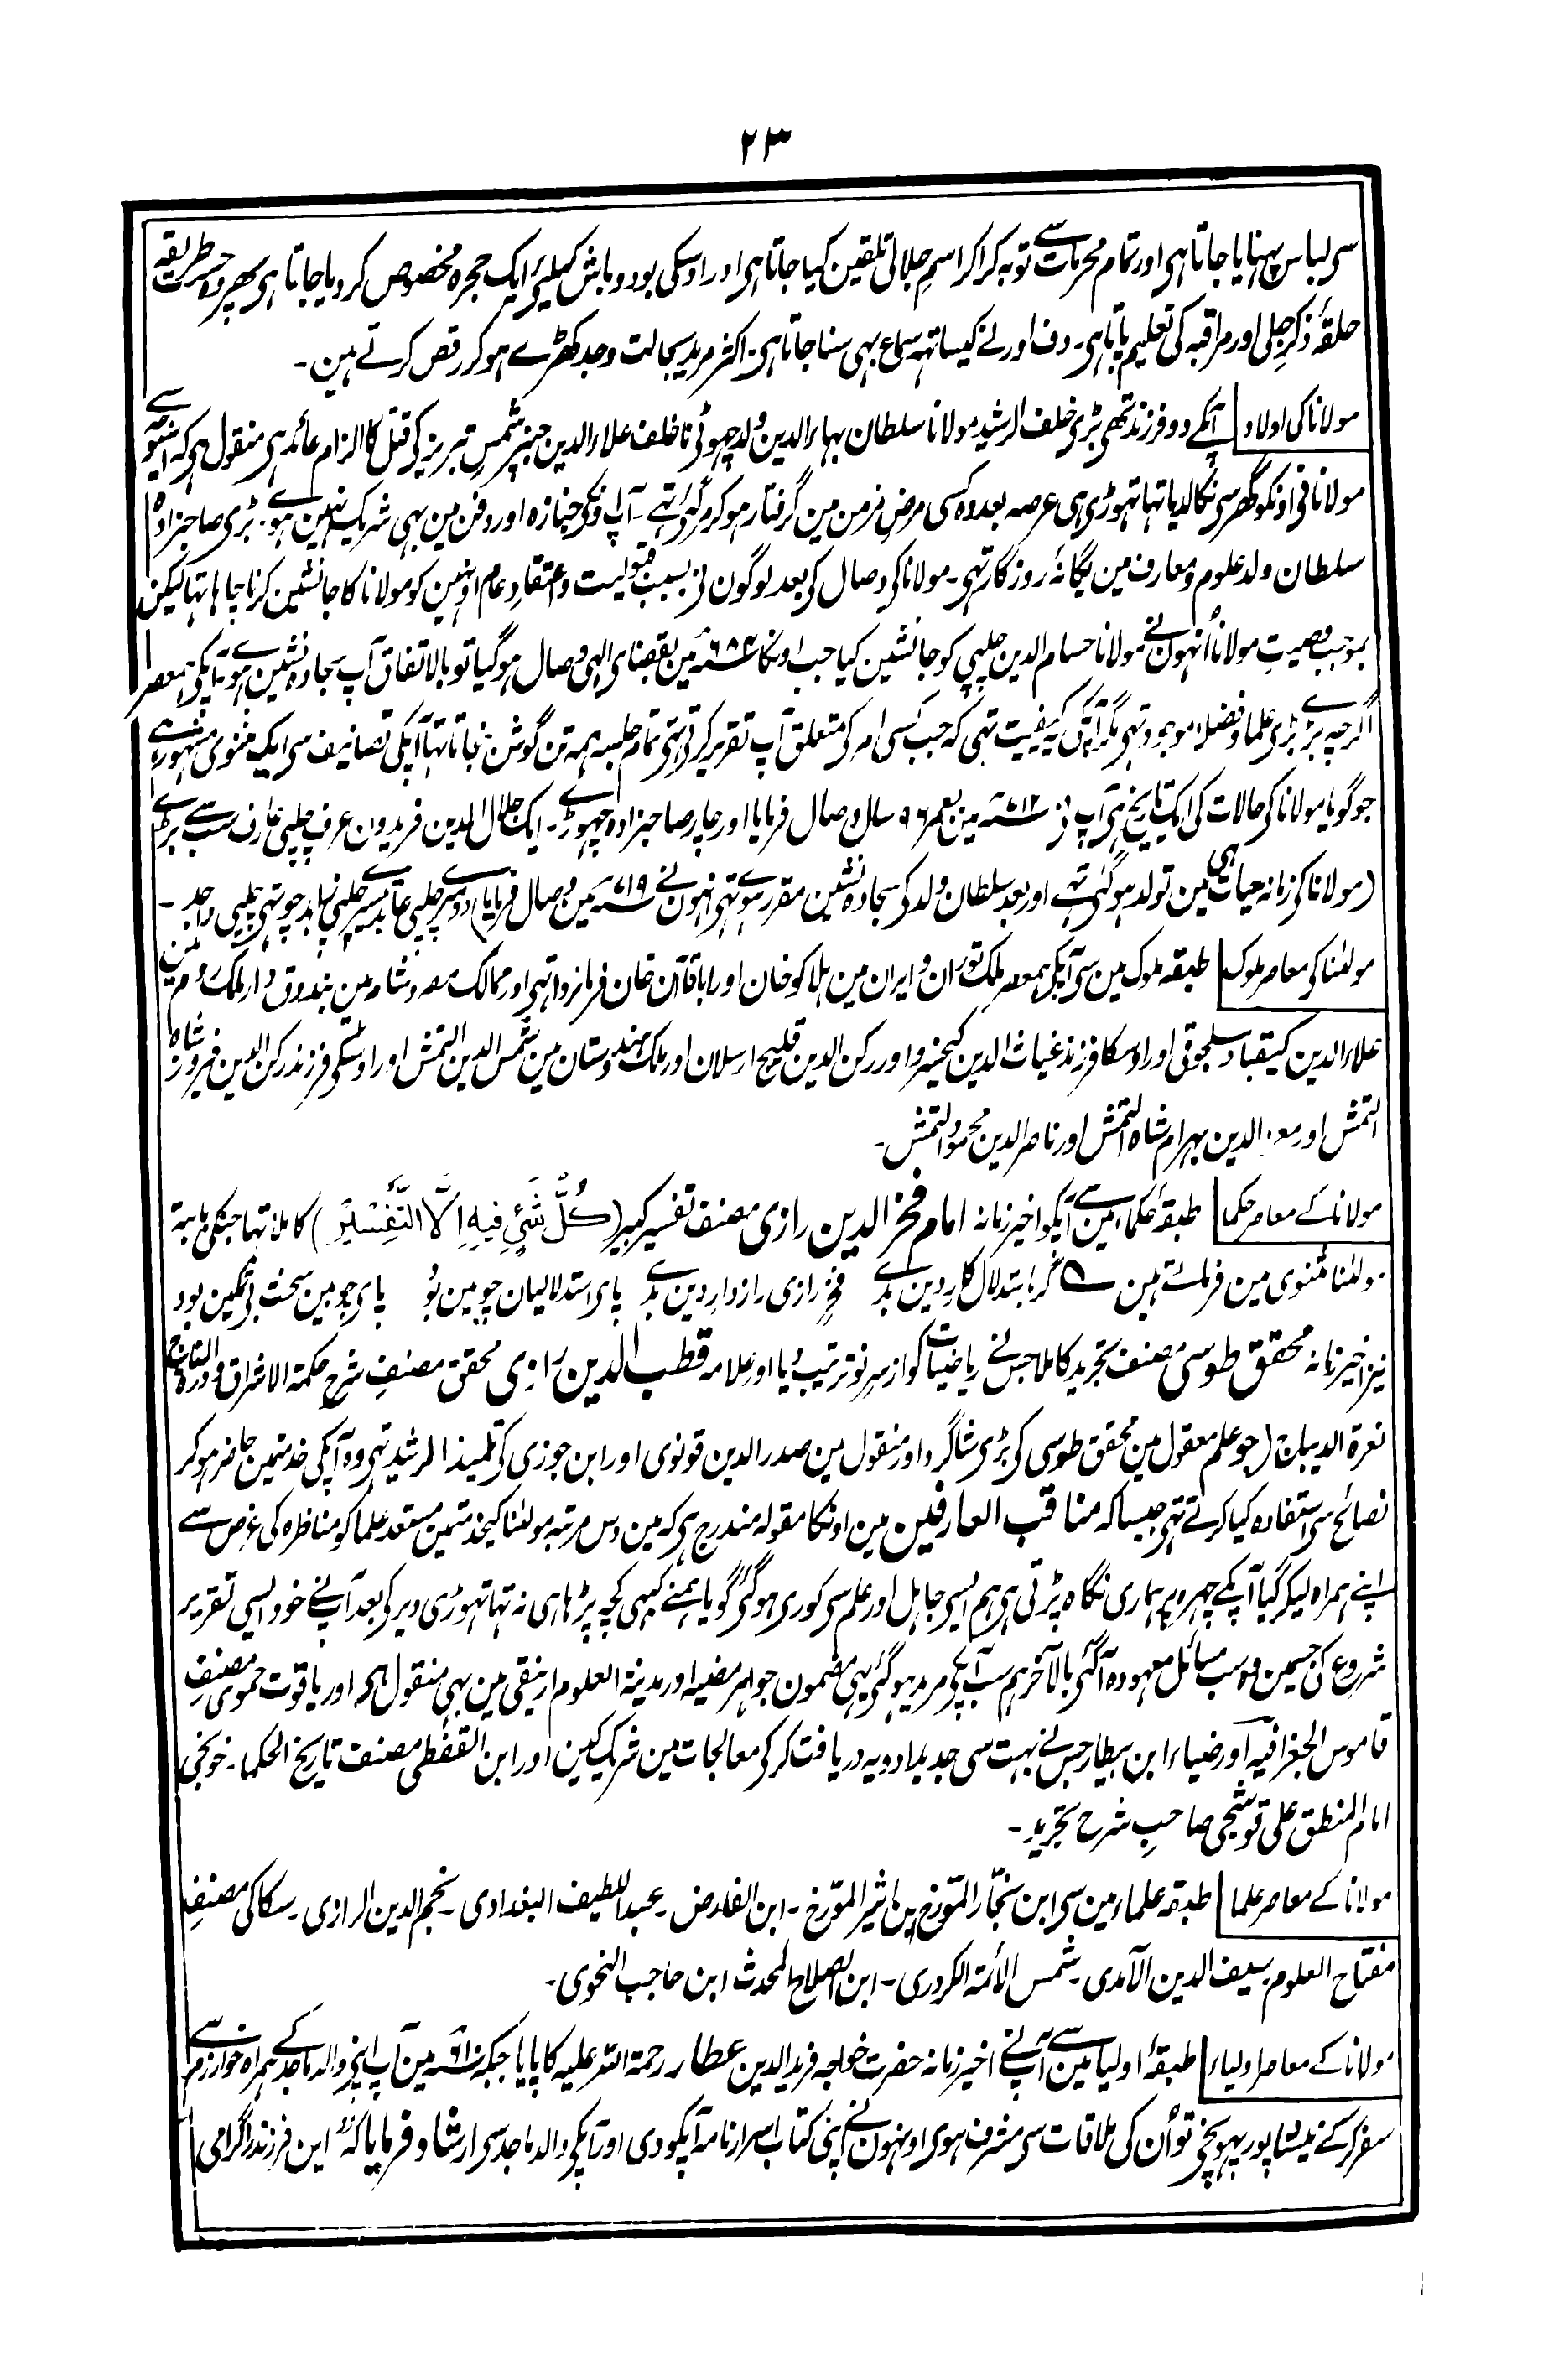 ۲۳
سی لباس پہنایا جاتا ہی اور تمام محرمات سے توبہ کراکر اسم جلالی تلقین کیا جاتا ہی اور اوسکی بود و باش کیلیٔے ایک حجرہ مخصوص کر دیا جاتا ہی پھر وہ حسب طریقہ
حلقۂ ذکر جلی اور مراقبہ کی تعلیم پاتا ہی۔ دف اور نے کیساتہہ سماع بہی سنا جاتا ہی۔ اکثر مرید بحالت وجد کھڑے ہو کر رقص کرتے ہین۔
مولانا کی اولاد آپکے دو فرزند تھی بڑی خلف الرشید مولانا سلطان بہاء الدین ولد چہوٹی ناخلف علاء الدین جنپر شمس تبریز کی قتل کا الزام عائد ہی منقول ہی کہ اسیوجہ سے
مولانا نی اونکو گھر سی نکالدیا تہا تہوڑی ہی عرصہ بعد وہ کسی مرض مزمن مین گرفتار ہو کر مر گئے تہے۔ آپ اونکی جنازہ اور دفن مین بہی شریک نہین ہوے۔ بڑی صاحبزادہ
سلطان ولد علوم و معارف مین یگانۂ روزگار تہی۔ مولانا کی وصال کی بعد لوگون نی بسبب مقبولیت و اعتقاد عام اونہین کو مولانا کا جانشین کرنا چاہا تہا لیکن
بموجب وصیت مولانا اُنہون نے مولانا حسام الدین چلپی کو جانشین کیا جب اونکا ۶۸۴؁ مین بقضای الہی وصال ہو گیا تو بالاتفاق آپ سجادہ نشین ہوے۔ آپکی ہمعصر
اگرچہ بڑے بڑی علما و فضلا موجود تہی مگر آپکی یہ کیفیت تہی کہ جب کسی امر کی متعلق آپ تقریر کرتی تہی تمام جلسہ ہمہ تن گوش بنجاتا تہا آپکی تصانیف سی ایک مثنوی مشہور ہے
جو گویا مولانا کی حالات کی ایک تاریخ ہی آپ نی ۷۱۲؁ مین بعمر ۹۶ سال وصال فرمایا اور چار صاحبزادہ چہوڑے۔ ایک جلال الدین فریدون عرف چلپی عارف سب سے بڑے
(مولانا کی زمانہ حیات ہی مین تولد ہو گئی تہے اور بعد سلطان ولد کی سجادہ نشین مقرر ہوے تہی انہون نے ۷۱۹؁ مین وصال فرمایا) دوسرے چلپی عابد تیسرے چلپی زاہد چوتہی چلپی واجد۔
مولٰنا کی معاصر ملوک طبقہ ملوک مین سی آپکی ہمعصر ملک توران و ایران مین ہلاکو خان اور اباقاآن خان فرمانروا تہی اور ممالک مصر و شام مین بندوق دار ملک روم مین
علاء الدین کیقباد سلجوقی اور اوسکا فرزند غیاث الدین کیخسرو اور رکن الدین قلیح ارسلان اور ملک ہندوستان مین شمس الدین التمش اور اوسکی فرزند رکن الدین فیروز شاہ
التمش اور معز الدین بہرام شاہ التمش اور ناصر الدین محمود التمش۔
مولانا کے معاصر حکما طبقۂ حکماء مین سے آپکو اخیر زمانہ امام فخر الدین رازی مصنف تفسیر کبیر (کُلُّ شَیْئٍ فِیْهِ اِلَّا التَّفْسِیْرُ) کا ملا تہا جنکی بابتہ
مولٰنا مثنوی مین فرماتے ہین ؎ گر باستدلال کار دین بدے فخر رازی رازدار دین بدے پای استدلالیان چوبین بُوَد پای چوبین سخت بی تمکین بود
نیز اخیر زمانہ محقق طوسی مصنف تجرید کا ملا جس نے ریاضیات کو از سر نو ترتیب دیا اور علامہ قطب الدین رازی محقق مصنف شرح حکمۃ الاشراق و درۃ التاج
نعرۃ الدیباج (جو علم معقول مین محقق طوسی کی بڑی شاگرد اور منقول مین صدر الدین قونوی اور ابن جوزی کی تلمیذ الرشید تہی وہ آپکی خدمتمین حاضر ہو کر
نصائح سی استفادہ کیا کرتے تہی جیسا کہ مناقب العارفین مین اونکا مقولہ مندرج ہی کہ مین دس مرتبہ مولٰنا کیخدمتمین مستعد علما کو مناظرہ کی غرض سے
اپنے ہمراہ لیکر گیا آپکے چہرہ پر ہماری نگاہ پڑتی ہی ہم ایسی جاہل اور علم سی کوری ہو گئی گویا ہمنے کبہی کچہہ پڑہا ہی نہ تہا تہوڑی دیر کی بعد آپنے خود ایسی تقریر
شروع کی جسمین وہ سب مسائل معہودہ آ گئی بالآخر ہم سب آپکی مرید ہو گئی یہی مضمون جواہر مضیہ اور مدینۃ العلوم ارنیقی مین بہی منقول ہے اور یاقوت حموی مصنف
قاموس الجغرافیہ اور ضیاء ابن بیطار جس نے بہت سی جدید ادویہ دریافت کر کی معالجات مین شریک کین اور ابن القفطی مصنف تاریخ الحکما۔ خونجی
امام المنطق علی قوشجی صاحب شرح تجرید۔
مولانا کے معاصر علما طبقہ علماء مین سی ابن نجّار المورّخ ابن اثیر المورّخ۔ ابن الفارض۔ عبد اللطیف البغدادی۔ نجم الدین الرازی۔ سکاکی مصنف
مفتاح العلوم سیف الدین الآمدی۔ شمس الأئمۃ الکردری۔ ابن الصلاح المحدث ابن حاجب النحوی۔
مولانا کے معاصر اولیاء طبقۂ اولیا مین سے آپ نے اخیر زمانہ حضرت خواجہ فرید الدین عطار رحمۃ اللہ علیہ کا پایا جبکہ ۶۱۰؁ مین آپ اپنی والد ماجد کے ہمراہ خوارزم سے
سفر کر کے نیشاپور پہونچی تو اُن کی ملاقات سی مشرف ہوی اونہون نے اپنی کتاب اسرار نامہ آپکو دی اور آپکی والد ماجد سی ارشاد فرمایا کہ این فرزند را گرامی